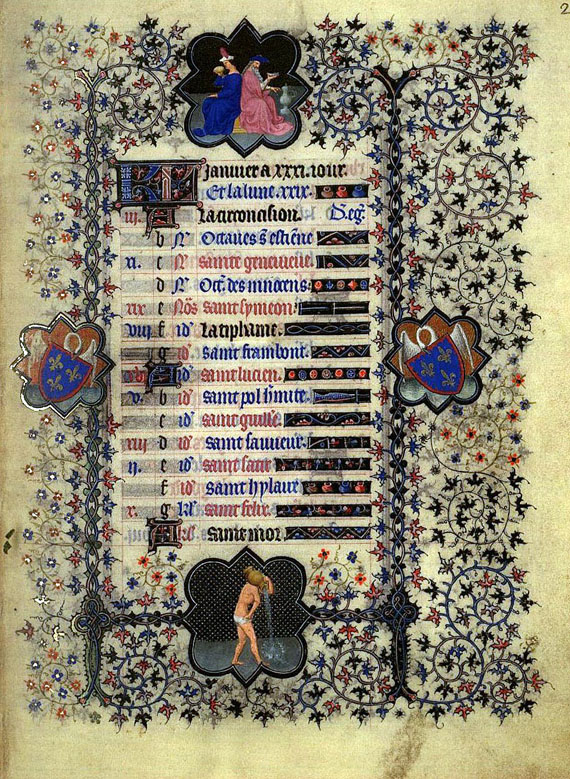 2
Januier a xxxi. iour.
Et la lune. xxix.
iii. A La circoncision. D. eg.
b Nͦ Octaues s. estiene
xi. c Nͦ sainte geneuieue.
d Nͦ Oct. des innocens.
xix e Nōs saint symeon.
viii f idͦ La tiphaine.
g idͦ saint frambout.
xvi A idͦ saint lucien.
v. b idͦ saint pol h̄mite.
c idͦ saint guille.
xiii d idͦ saint sauueur.
ii. e idͦ saint satir
f idͦ saint hylaire
x. g kl͛ saint felix.
A kl͛ saint mor.